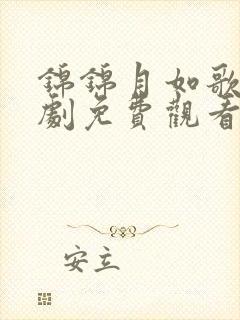 錦錦月如歌
劇免費觀看
安立